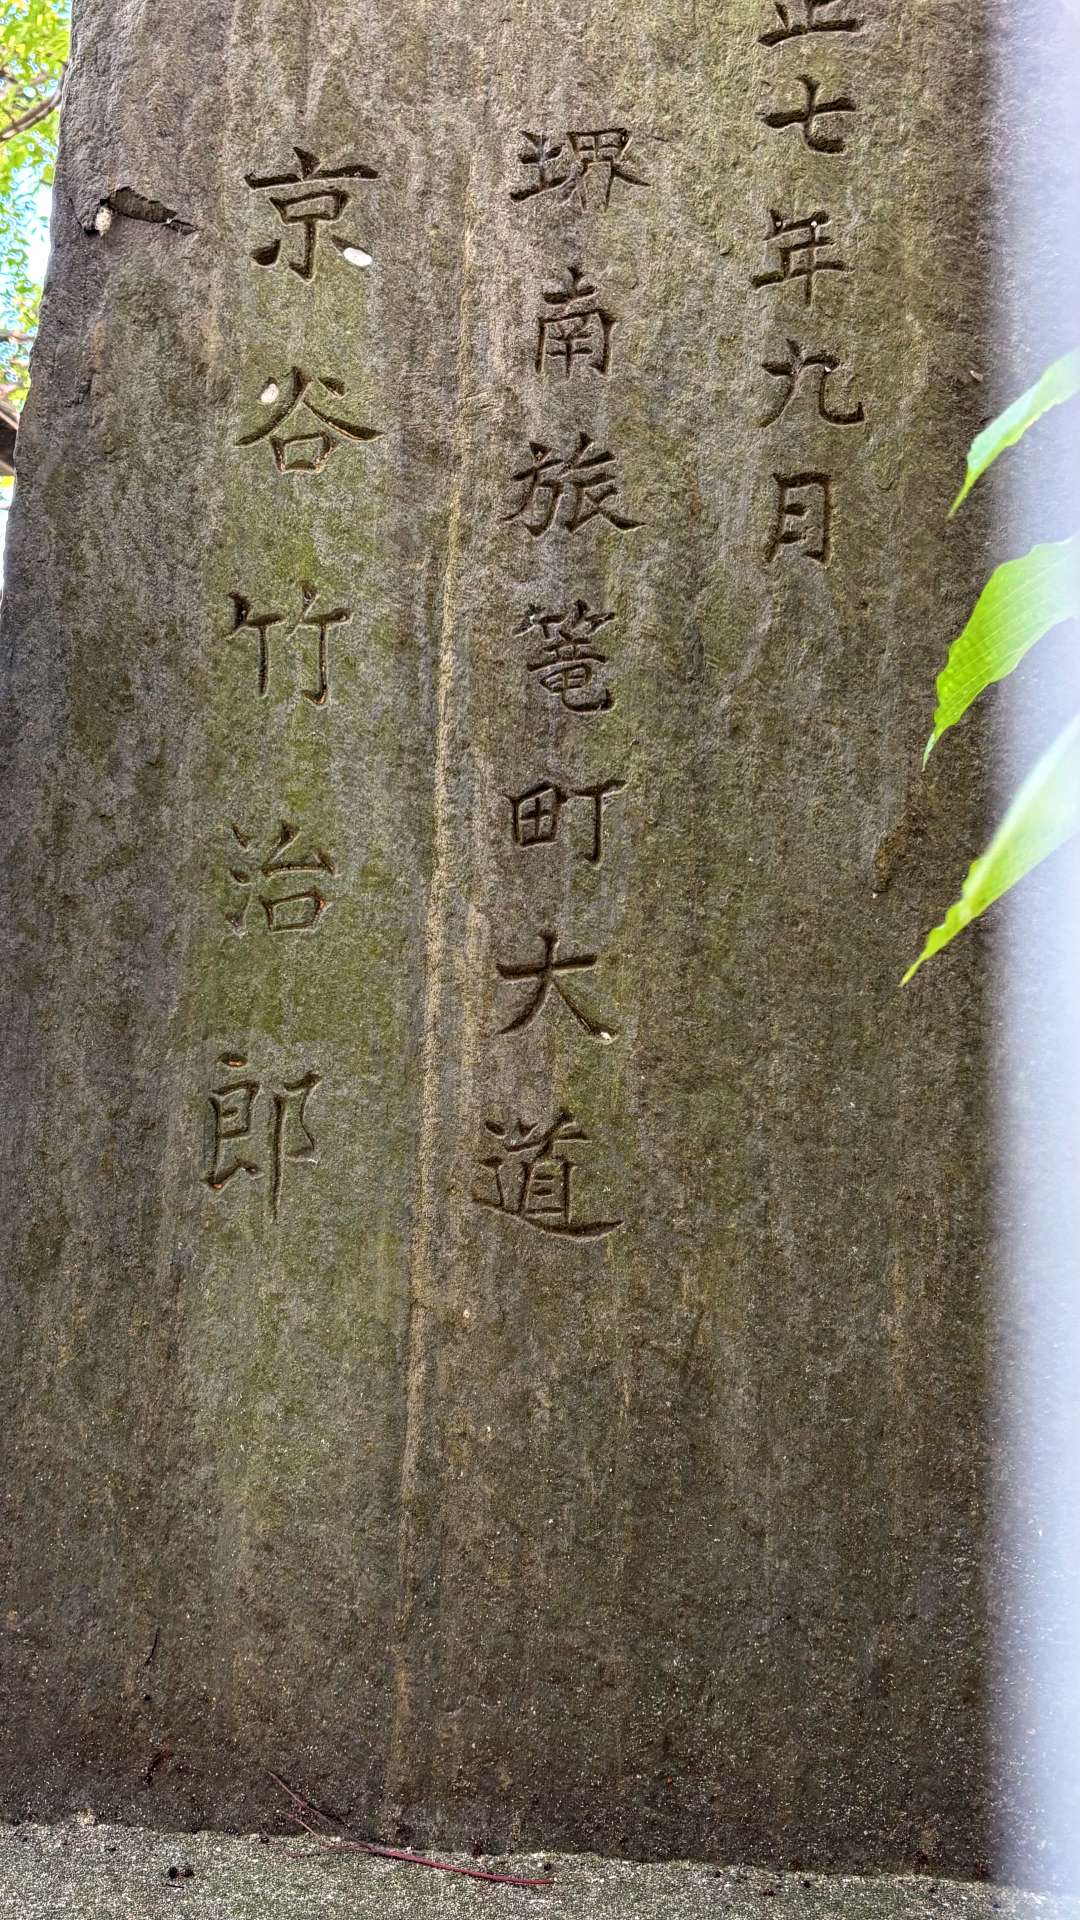 正七年九月
堺南旅篭町大道
京谷竹治郎